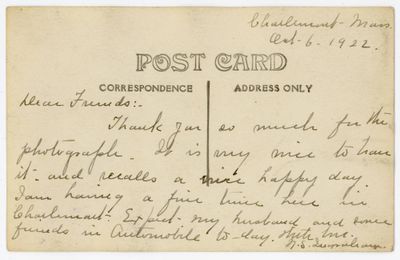 Charlemont - Mass.
Oct - 6 - 1922.
POST CARD
CORRESPONDENCE
ADDRESS ONLY
Dear Friends:-
Thank you so much for the
photograph. It is very nice to have
it - and recalls a nice happy day.
I am having a fine time here in
Charlemont. Expect my husband and some
friends in Automobile to-day.